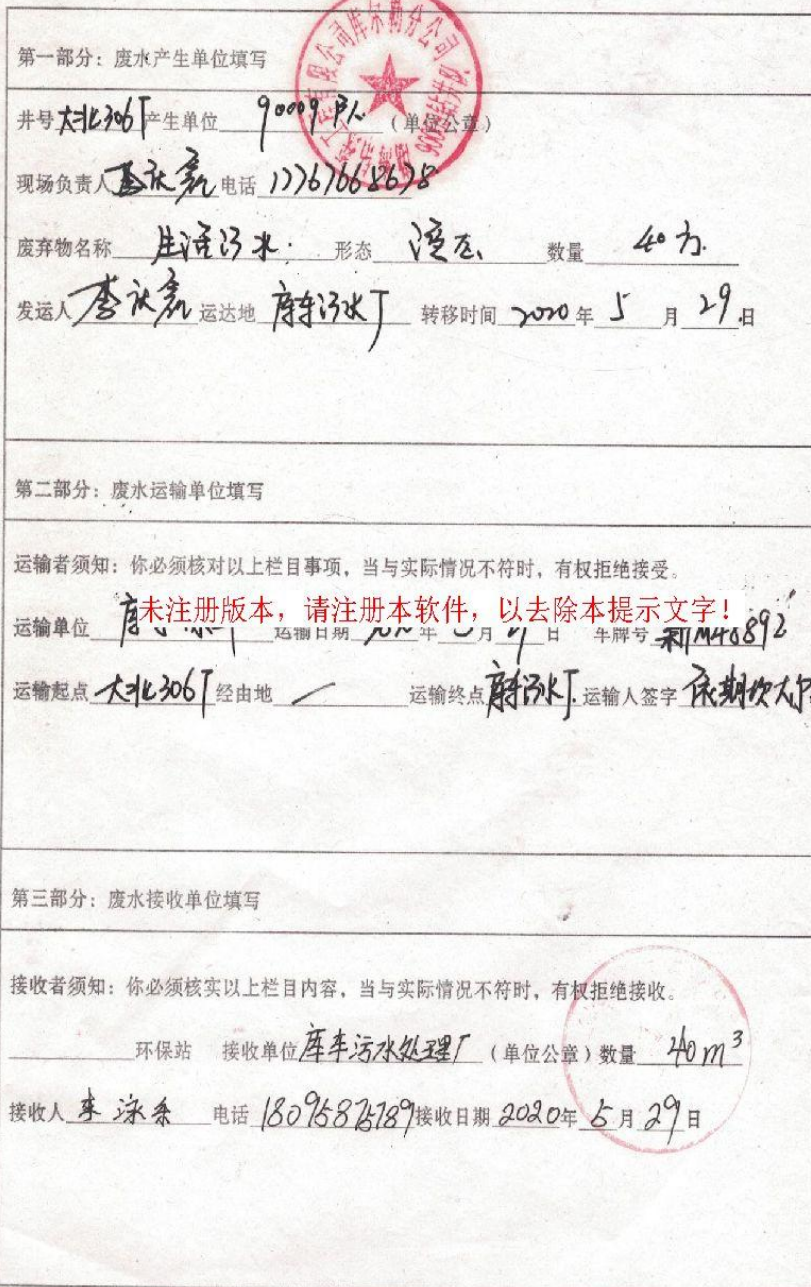 第一部分：废水产生单位填写
井号 大北306T 产生单位 90009队 （单位公章）
现场负责人 李庆磊 电话 17767668678
废弃物名称 生活污水 形态 液态 数量 40方
发运人 李庆磊 运达地 库车污水厂 转移时间 2020 年 5 月 29 日
第二部分：废水运输单位填写
运输者须知：你必须核对以上栏目事项，当与实际情况不符时，有权拒绝接受。
未注册版本，请注册本软件，以去除本提示文字！
运输单位 运输日期 年 月 日 车牌号 新M48892
运输起点 大北306T 经由地 / 运输终点 库车污水厂 运输人签字
第三部分：废水接收单位填写
接收者须知：你必须核实以上栏目内容，当与实际情况不符时，有权拒绝接收。
环保站 接收单位 库车污水处理厂 （单位公章）数量 40m³
接收人 电话 18095875789 接收日期 2020年 5 月 29 日